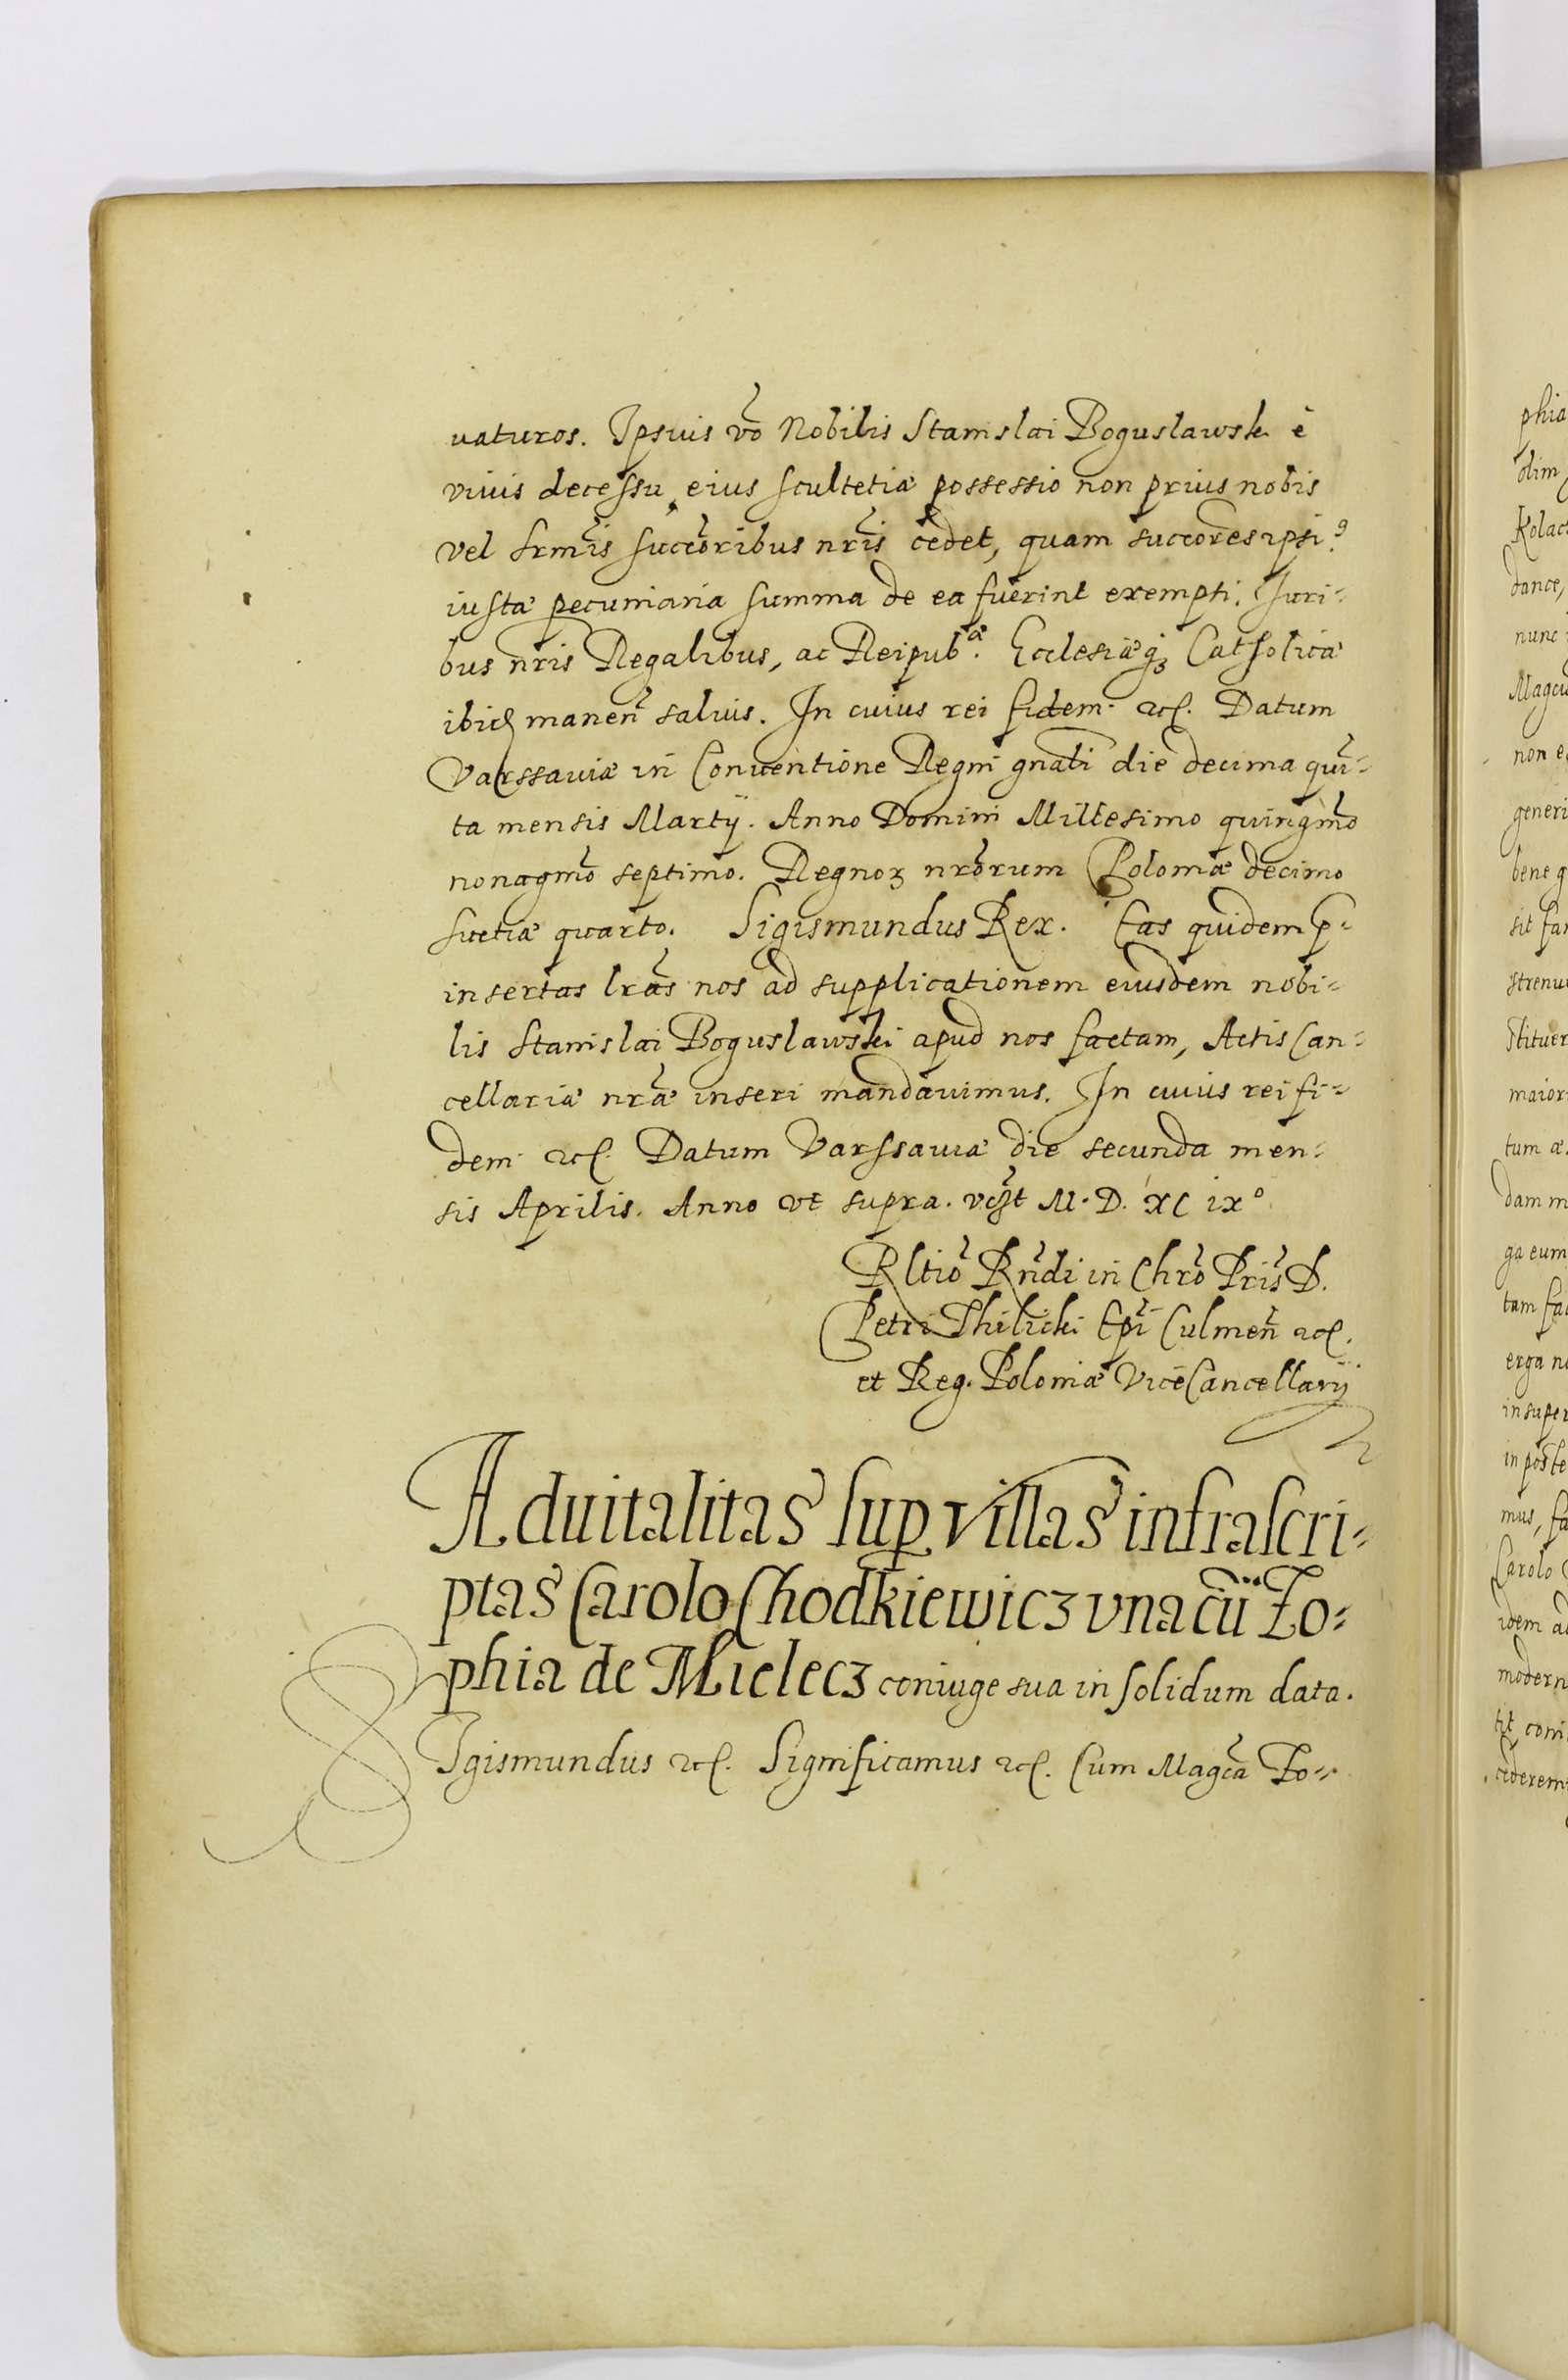 uaturos. Ipsius vō Nobilis Stanislai Boguslawski è
viuis decessu eius scultetiæ possessio non prius nobis
vel Srm̄is succōribus nr̄is cedet, quam succōres ipsi⁹
iusta pecuniaria summa de ea fuerint exempti. Iuri-
bus nr̄is Regalibus, ac Reipub.æ Ecclesiæqꝫ Catholicæ
ibid manen̄ saluis. In cuius rei fidem ꝛcȩ. Datum
Varssauiæ in Conuentione Regni gn̄ali die decima quī-
ta mensis Martij. Anno Domini Millesimo quingm̄o
nonagm̄o septimo. Regnoꝝ nrōrum Poloniæ decimo
Suetiæ quarto. Sigismundus Rex. Eas quidem p̄-
insertas lrās nos ad supplicationem eiusdem nobi-
lis Stanislai Boguslawski apud nos factam, Actis Can-
cellariæ nrǣ inseri mandauimus. In cuius rei fi-
dem ꝛcȩ. Datum Varssauiæ die secunda men-
sis Aprilis. Anno vt supra. M. D. XC ix°
Rltiō Rn̄di in Chrō Pris̄ D.
Petri Thilicki Ep̄i Culmen̄ ꝛcȩ.
et Reg. Poloniæ ViceCancellarij
Aduitalitas sup̱ villas infrascri-
ptas Carolo Chodkiewicz vna cū Zo-
phia de Mielecz coniuge sua in solidum data.
Sigismundus ꝛcȩ. Significamus ꝛcȩ. Cum Magcā Zo-
phia
olim
Kolac
dance,
nunc
Magcu
non e
generi
bene q
sit fa
strenu
stituer
maior
tum æ
dam m
ga eum
tam fa
erga n
insuper
in poste
mus, fa
Carolo
idem a
modern
tit coni
cederem